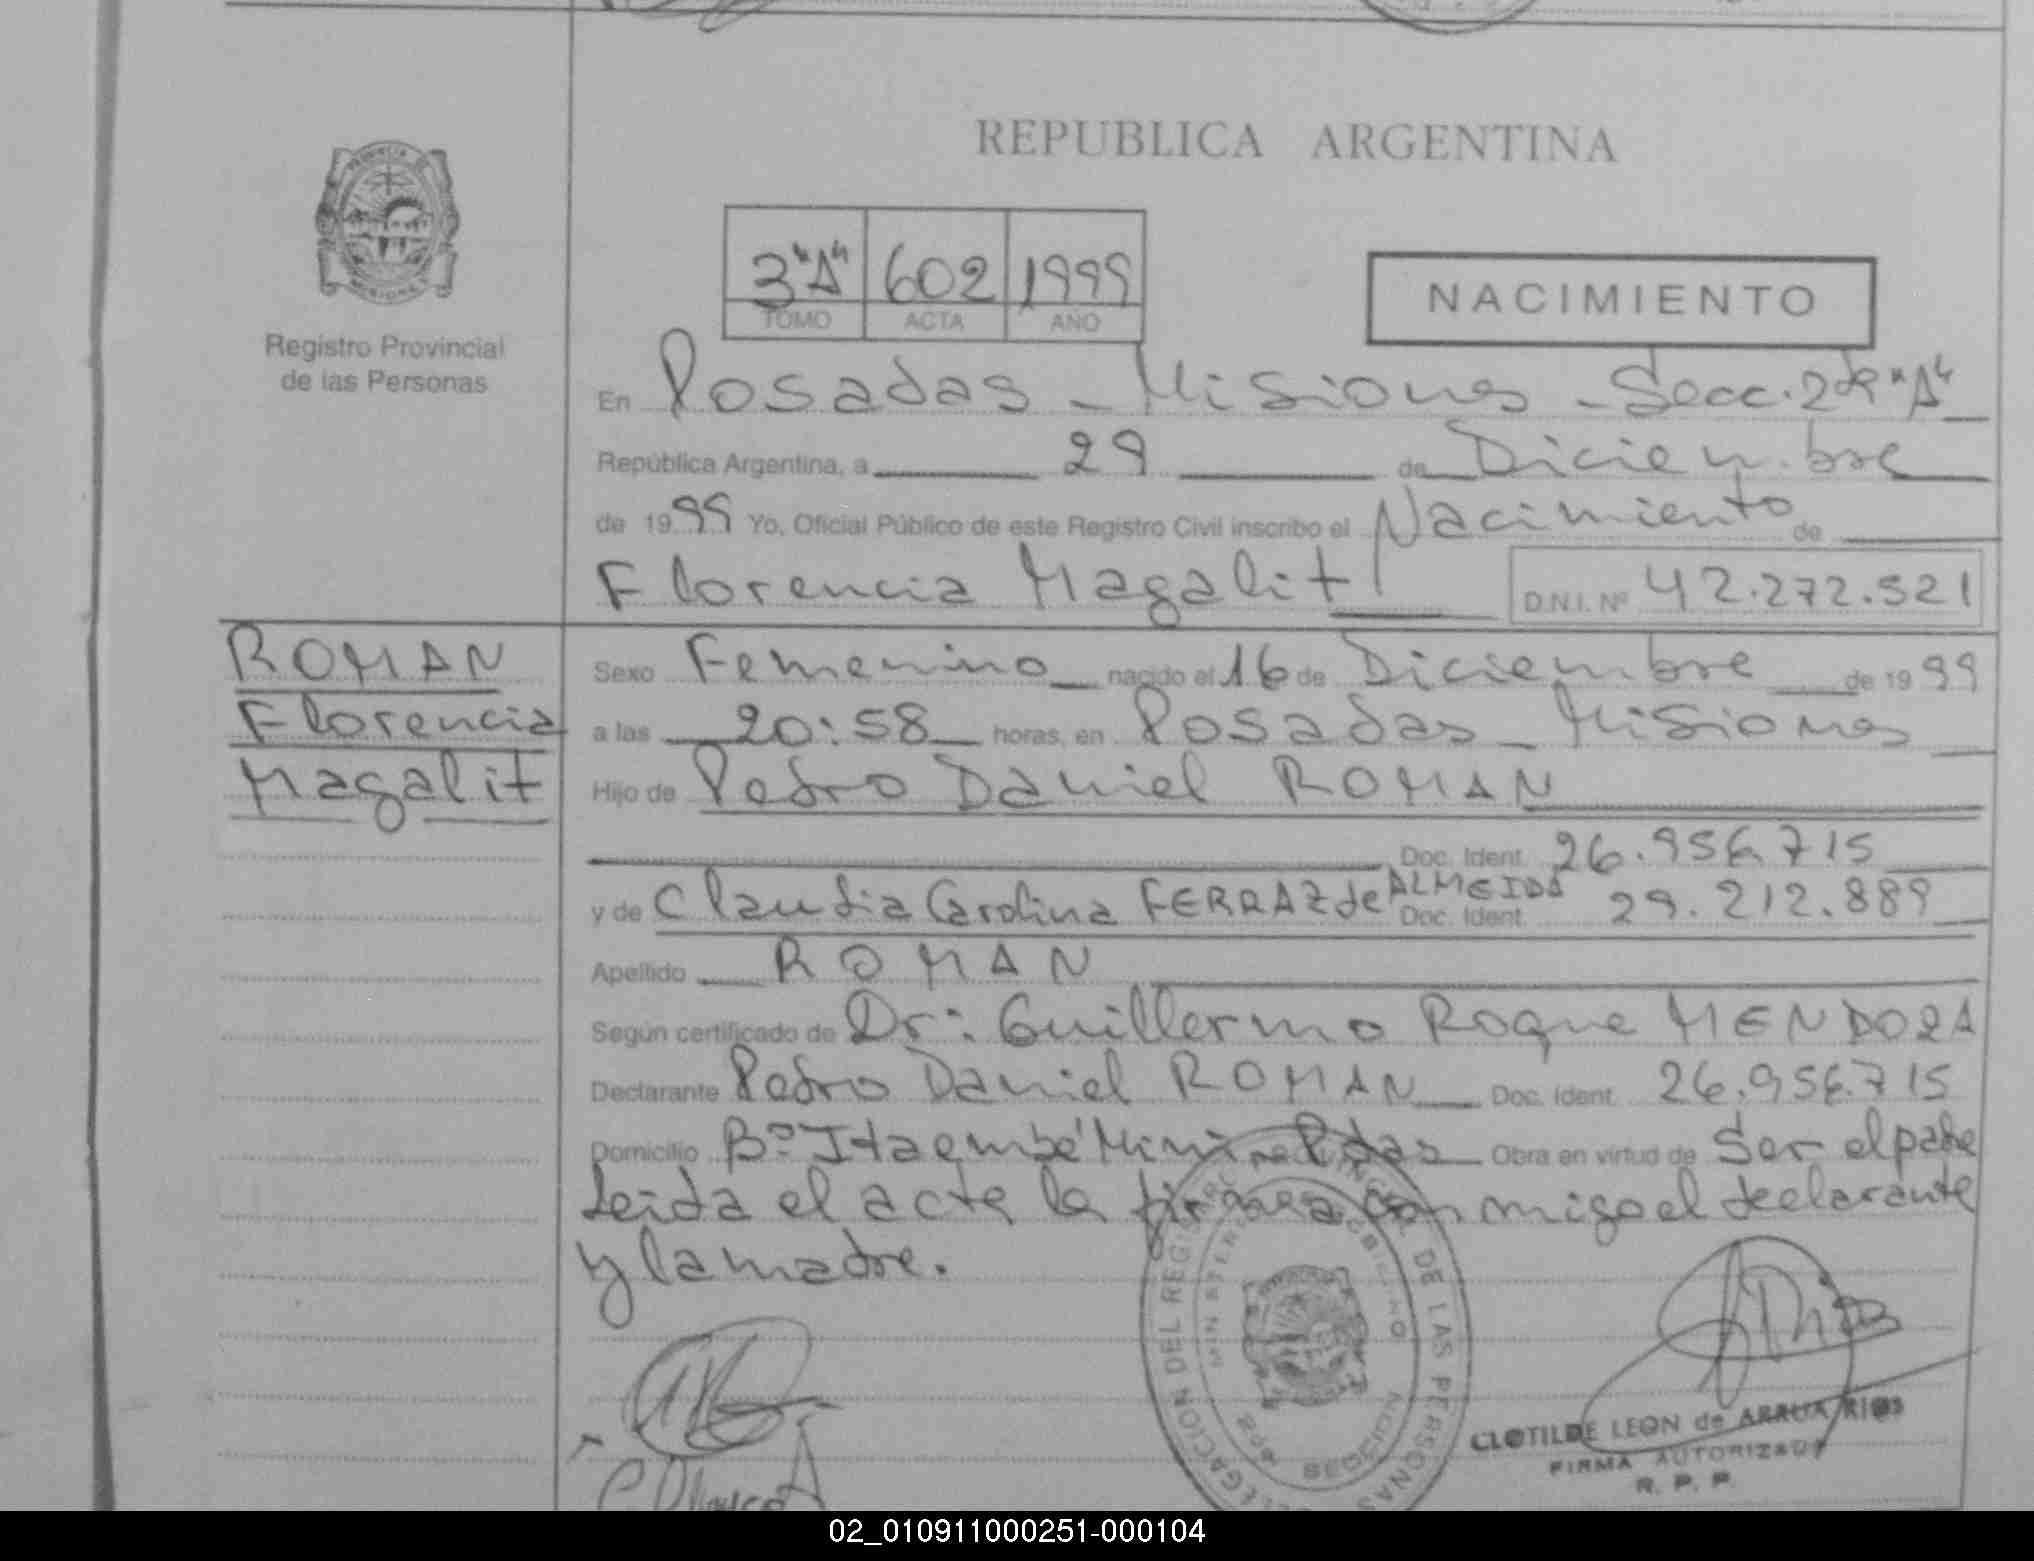 REPUBLICA ARGENTINA
PROVINCIA
MISIONES
Registro Provincial
de las Personas
3"A" 602 1999
TOMO ACTA AÑO
NACIMIENTO
En Posadas - Misiones - Secc. 2da "A"
República Argentina, a 29 de Diciembre
de 1999 Yo, Oficial Público de este Registro Civil inscribo el Nacimiento de
Florencia Magalit
D.N.I. Nº 42.272.521
ROMAN
Florencia
Magalit
Sexo Femenino nacido el 16 de Diciembre de 1999
a las 20:58 horas, en Posadas - Misiones
Hijo de Pedro Daniel ROMAN
Doc. Ident. 26.956.715
y de Claudia Carolina FERRAZ de ALMEIDA Doc. Ident. 29.212.889
Apellido ROMAN
Según certificado de Dr: Guillermo Roque MENDOZA
Declarante Pedro Daniel ROMAN Doc. Ident. 26.956.715
Domicilio Bº Itaembé Mini - Pdas Obra en virtud de Ser el padre
Leida el acta la firma con migo el declarante
y la madre.
DELEGACION DEL REGISTRO PROVINCIAL DE LAS PERSONAS
MINISTERIO DE GOBIERNO
SECCION
CLOTILDE LEON de ARRUA RIOS
FIRMA AUTORIZADA
R. P. P.
02_010911000251-000104